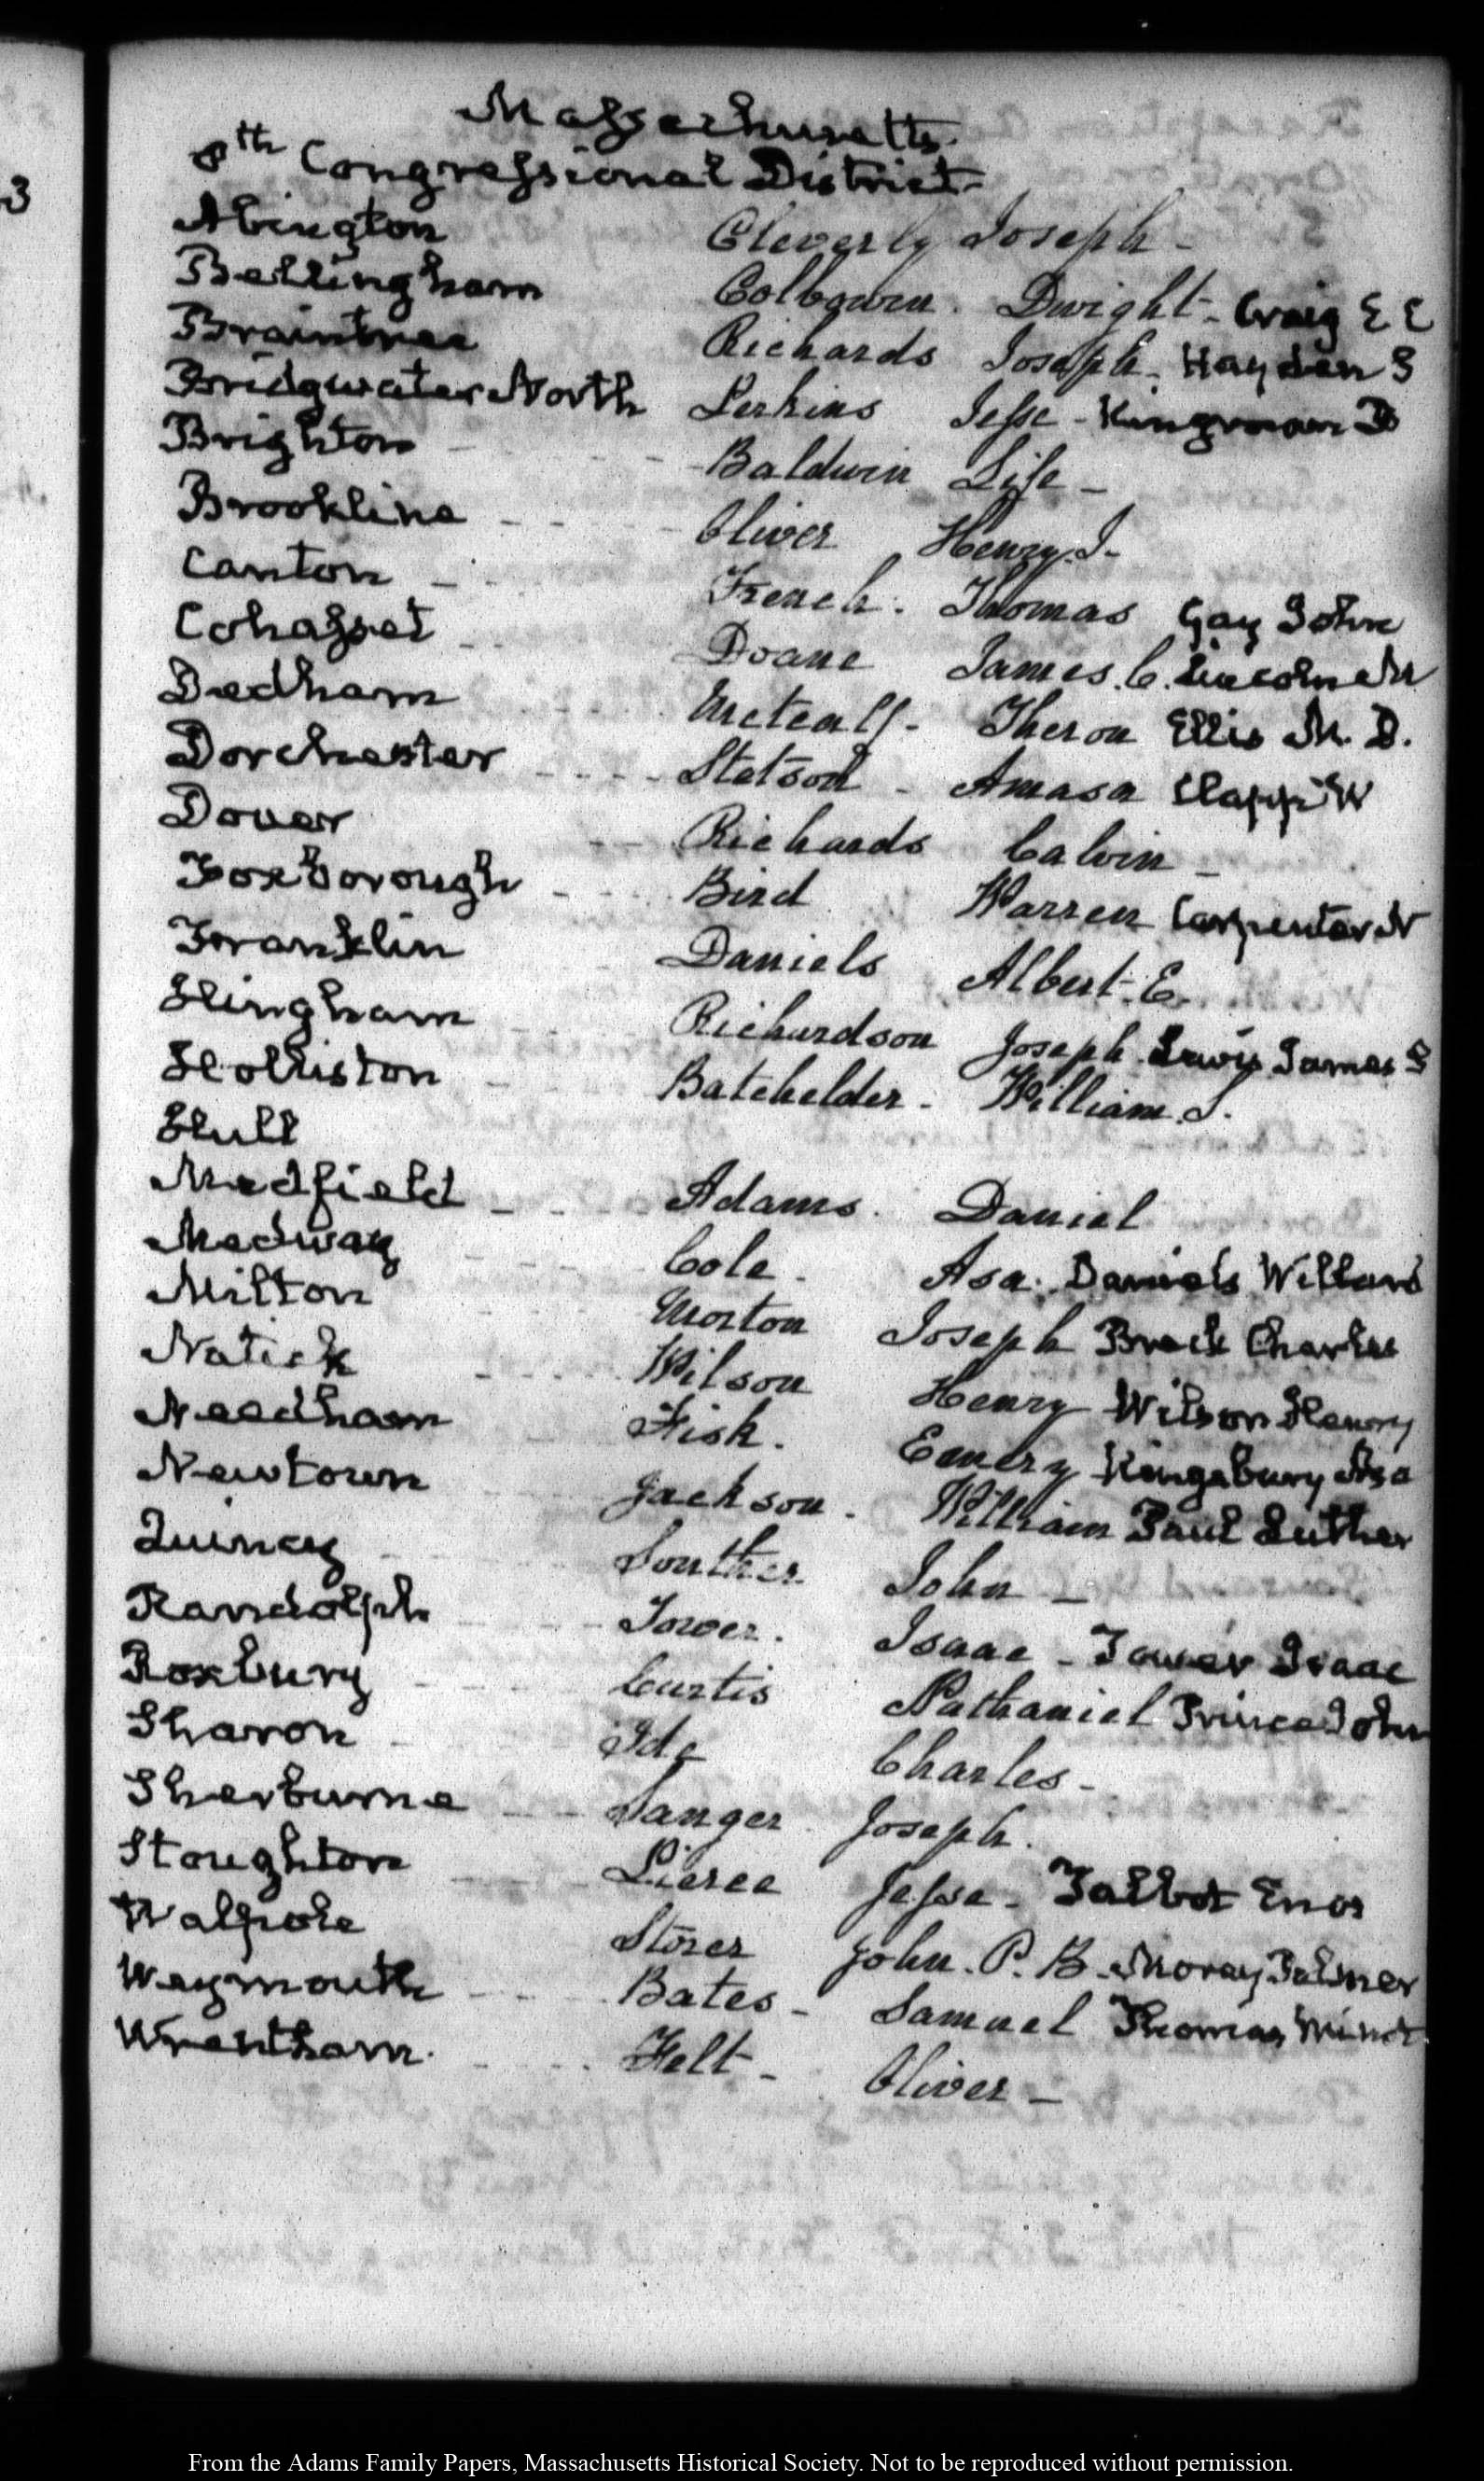 3
Massachusetts.
8th Congressional District-
Abington Cleverly Joseph -
Bellingham Colbourn. Dwight - Craig E E
Braintree Richards Joseph - Hayden S
Bridgwater North Perkins Jesse - Kingman B
Brighton Baldwin Life -
Brookline Oliver Henry. J-
Canton French. Thomas Gay John
Cohasset Doane James. C. Lincoln M
Dedham Metcalf - Theron Ellis M. D.
Dorchester Stetson - Amasa Clapp W
Dover Richards Calvin -
Foxborough Bird Warren Carpenter N
Franklin Daniels Albert. E.
Hingham Richardson Joseph. Lewis James S
Holliston Batchelder - William. S.
Hull
Medfield Adams. Daniel
Medway Cole. Asa. Daniels Willard
Milton Morton Joseph Breck Charles
Natick Wilson Henry Wilson Henry
Needham Fisk. Emery Kingsbury Asa
Newtown Jackson. William Paul Luther
Quincy Souther John -
Randolph Tower. Isaac - Tower Isaac
Roxbury Curtis Nathaniel Prince John
Sharon Ide Charles -
Sherburne Sanger Joseph.
Stoughton Pierce Jesse - Talbot Enos
Walpole Storer John. P. B. Morey Palmer
Weymouth Bates - Samuel Thomas Minot
Wrentham. Felt - Oliver -
From the Adams Family Papers, Massachusetts Historical Society. Not to be reproduced without permission.